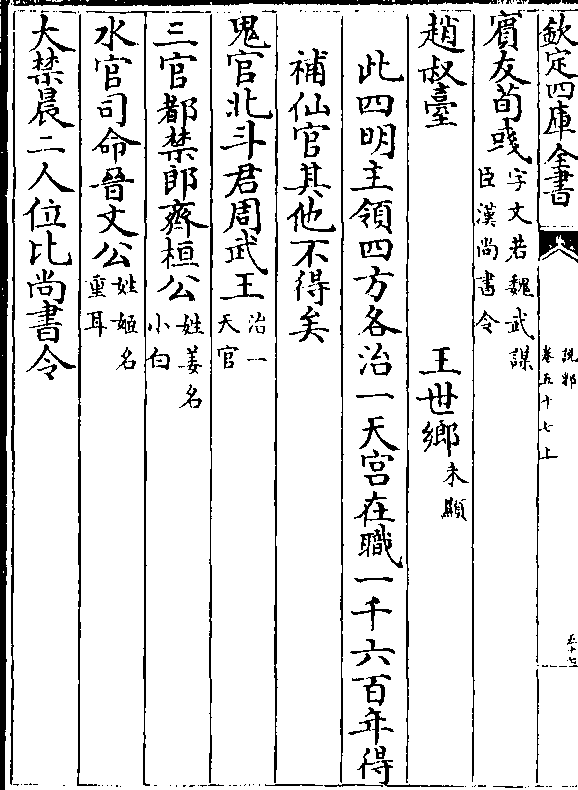 欽定四庫全書
說郛
卷五十七上
賓友荀彧字文若魏武謀臣漢尚書令
趙叔臺 王世鄉未顯
此四明主領四方各治一天宮在職一千六百年得
補仙官其他不得矣
鬼官北斗君周武王治一天官
三官都禁郎齊桓公姓姜名小白
水官司命晉文公姓姬名重耳
大禁晨二人位比尚書令